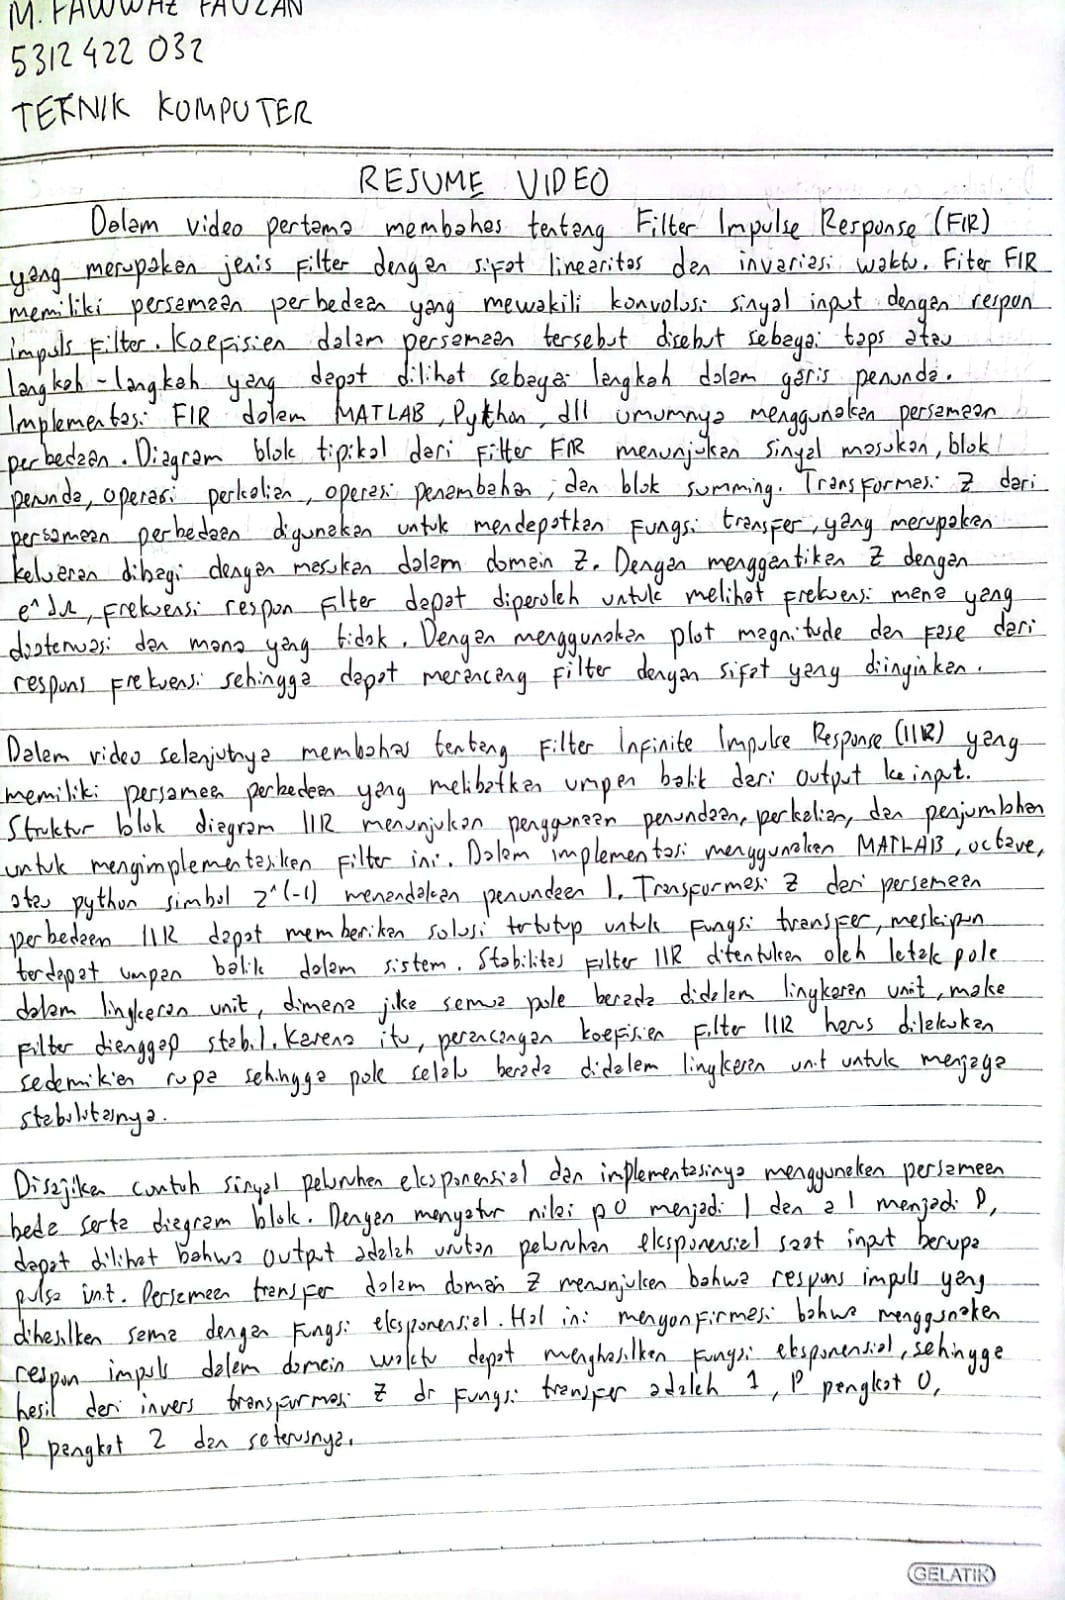 M. FAWWAZ FAUZAN
5312 422 032
TEKNIK KOMPUTER
RESUME VIDEO
Dalam video pertama membahas tentang Filter Impulse Response (FIR)
yang merupakan jenis Filter dengan sifat linearitas dan invariasi waktu. Fiter FIR
memiliki persamaan perbedaan yang mewakili konvolusi sinyal input dengan respon
impuls Filter. Koefisien dalam persamaan tersebut disebut sebagai taps atau
langkah-langkah yang dapat dilihat sebagai langkah dalam garis penunda.
Implementasi FIR dalam MATLAB, Python, dll umumnya menggunakan persamaan
perbedaan. Diagram blok tipikal dari Filter FIR menunjukan sinyal masukan, blok
penunda, operasi perkalian, operasi penambahan, dan blok summing. Transformasi Z dari
persamaan perbedaan digunakan untuk mendapatkan Fungsi transfer, yang merupakan
keluaran dibagi dengan masukan dalam domain Z. Dengan menggantikan Z dengan
e^JΩ, Frekuensi respon Filter dapat diperoleh untuk melihat frekuensi mana yang
diatenuasi dan mana yang tidak. Dengan menggunakan plot magnitude dan Fase dari
respons Frekuensi sehingga dapat merancang Filter dengan sifat yang diinginkan.
Dalam video selanjutnya membahas tentang Filter Infinite Impulse Response (IIR) yang
memiliki persamaan perbedaan yang melibatkan umpan balik dari output ke input.
Struktur blok diagram IIR menunjukan penggunaan penundaan, perkalian, dan penjumlahan
untuk mengimplementasikan Filter ini. Dalam implementasi menggunakan MATLAB, octave,
atau python simbol z^(-1) menandakan penundaan 1. Transformasi Z dari persamaan
perbedaan IIR dapat memberikan solusi tertutup untuk Fungsi transfer, meskipun
terdapat umpan balik dalam sistem. Stabilitas Filter IIR ditentukan oleh letak pole
dalam lingkaran unit, dimana jika semua pole berada didalam lingkaran unit, maka
Filter dianggap stabil. Karena itu, perancangan koefisien Filter IIR harus dilakukan
sedemikian rupa sehingga pole selalu berada didalam lingkaran unit untuk menjaga
stabilitasnya.
Disajikan contoh sinyal peluruhan eksponensial dan implementasinya menggunakan persamaan
beda serta diagram blok. Dengan mengatur nilai p0 menjadi 1 dan a1 menjadi P,
dapat dilihat bahwa output adalah urutan peluruhan eksponensial saat input berupa
pulsa unit. Persamaan transfer dalam domain Z menunjukan bahwa respons impuls yang
dihasilkan sama dengan Fungsi eksponensial. Hal ini mengonfirmasi bahwa menggunakan
respon impuls dalam domain waktu dapat menghasilkan Fungsi eksponensial, sehingga
hasil dari invers transformasi Z dr Fungsi transfer adalah 1, P pangkat 0,
P pangkat 2 dan seterusnya.
GELATIK